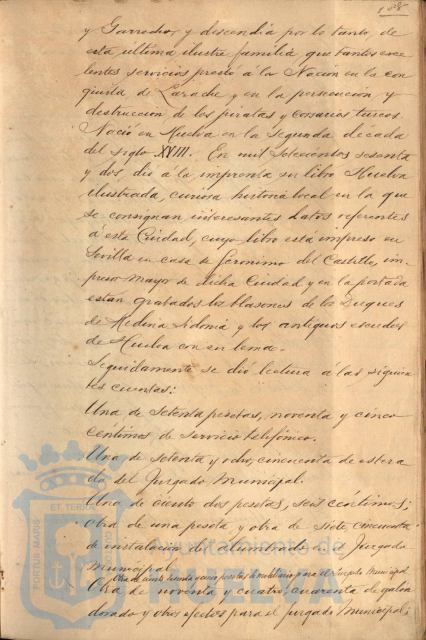 108
y Garrocho, y descendia por lo tanto, de
esta ultima ilustre familia que tantos exce
lentes servicios prestó á la Nacion en la con
quista de Larache y en la persecucion y
destruccion de los piratas y corsarios turcos.
Nació en Huelva en la segunda decada
del siglo XVIII. En mil setecientos sesenta
y dos, dio á la imprenta su libro Huelva
ilustrada, curiosa historia local en la que
se consignan interesantes datos referentes
á esta Ciudad, cuyo libro está impreso en
Sevilla en casa de Geronimo del Castillo, im-
presor mayor de dicha Ciudad y en la portada
estan grabados los blasones de los Duques
de Medina Sidonia y los antiguos escudos
de Huelva con su lema.
Seguidamente se dio lectura á las siguien
tes cuentas:
Una de setenta pesetas, noventa y cinco
centimos de servicio telefónico.
Una de setenta y ocho, cincuenta de estera
do del Juzgado Municipal.
Una de ciento dos pesetas, seis céntimos;
otra de una peseta y otra de siete cincuenta
de instalacion de alumbrado en el Juzgado
Municipal.
Otra de ciento pesetas de mobiliario para el Juzgado Municipal
Otra de noventa y cuatro, cuarenta de galon
dorado y otros efectos para el Juzgado Municipal;
PORTUS MARIS ET TERRAE CUSTODIA
Ayuntamiento de
HUELVA